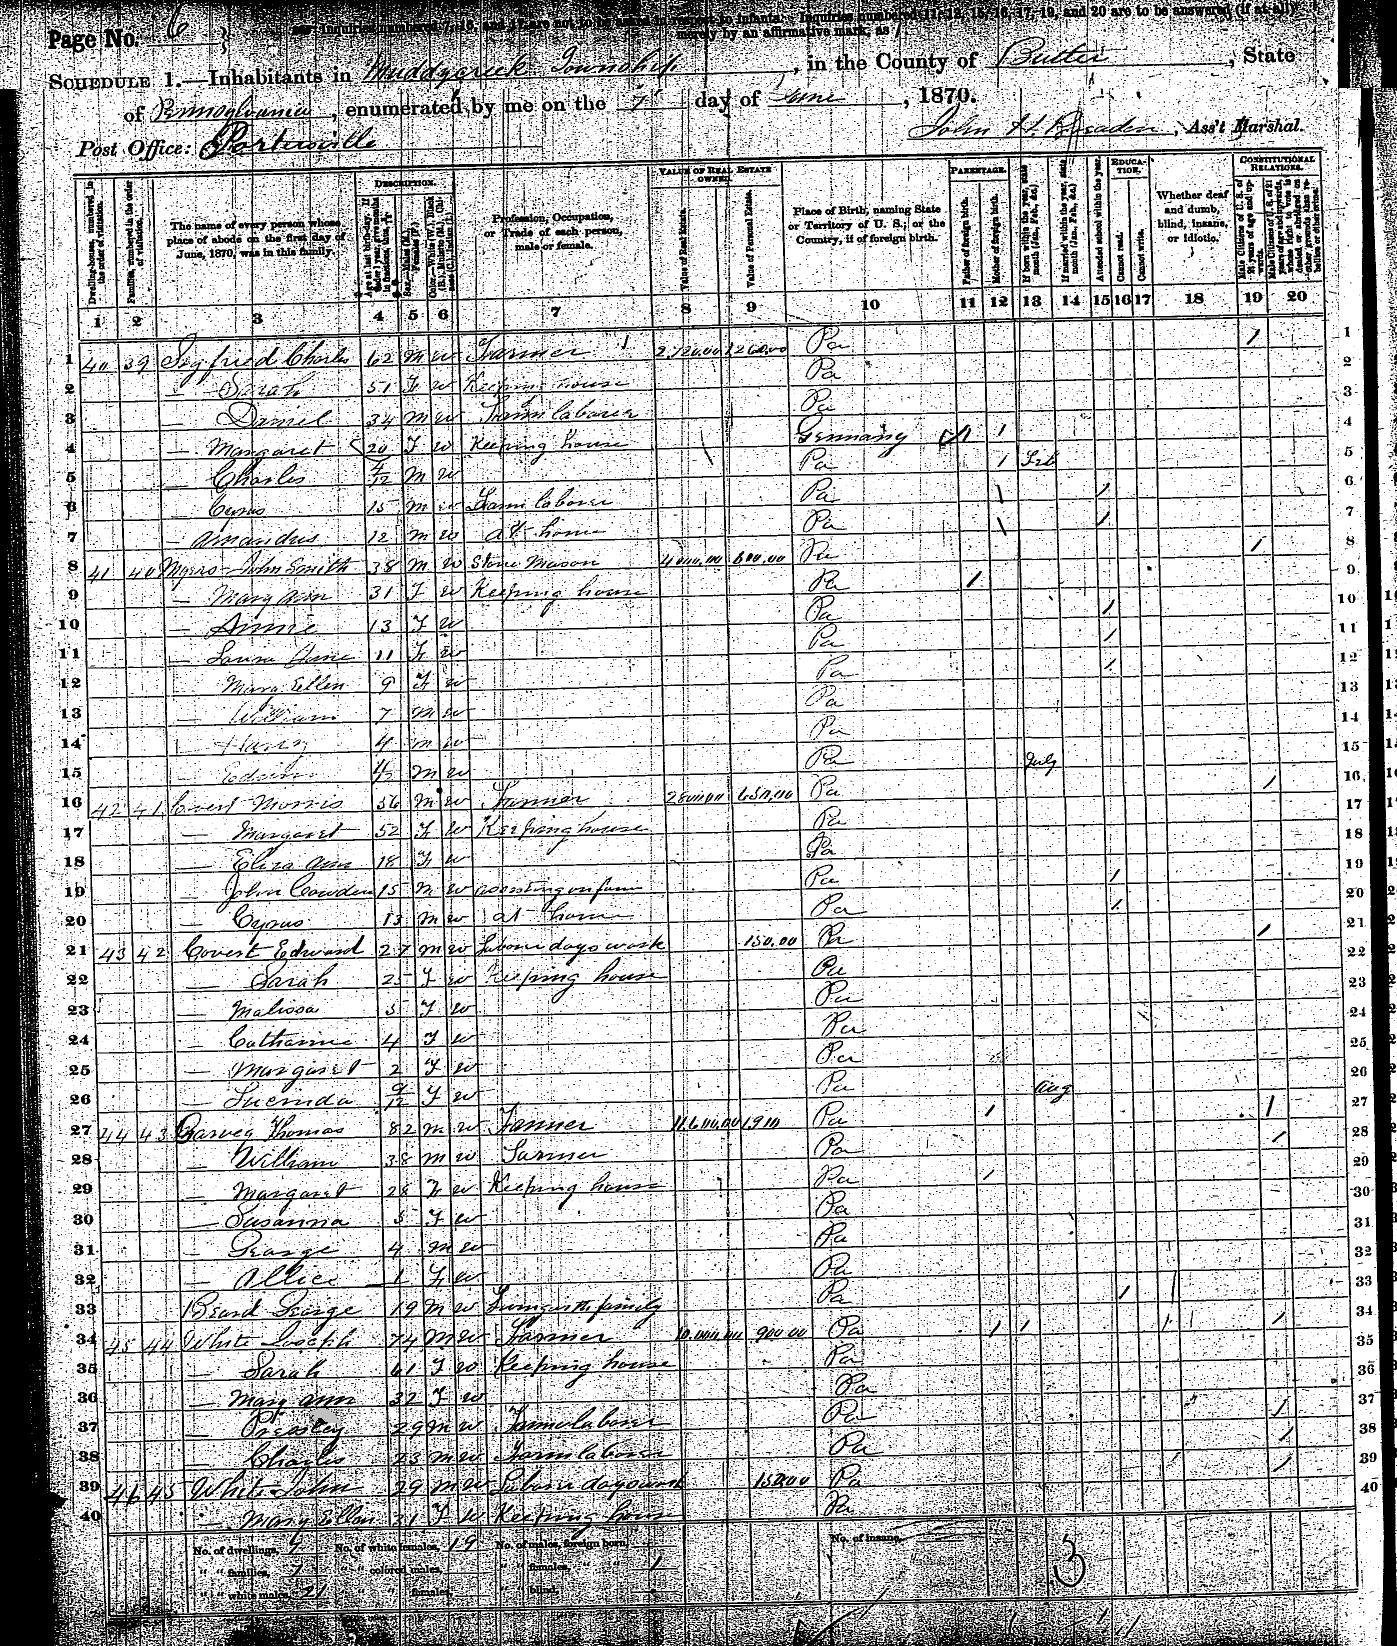 Page No. 6
Inquiries numbered 7, 16, and 17 are not to be asked in respect to infants. Inquiries numbered 11, 12, 15, 16, 17, 19, and 20 are to be answered (if at all) merely by an affirmative mark, as /.
SCHEDULE 1.—Inhabitants in Muddycreek Township, in the County of Butler, State
of Pennsylvania, enumerated by me on the 7 day of June, 1870.
Post Office: Portersville
John H. , Ass't Marshal.
DESCRIPTION. VALUE OF REAL ESTATE OWNED. PARENTAGE. EDUCATION. CONSTITUTIONAL RELATIONS.
Dwelling-houses, numbered in the order of visitation.
Families, numbered in the order of visitation.
The name of every person whose place of abode on the first day of June, 1870, was in this family.
Profession, Occupation, or Trade of each person, male or female.
Value of Real Estate.
Value of Personal Estate.
Place of Birth, naming State or Territory of U. S.; or the Country, if of foreign birth.
Father of foreign birth.
Mother of foreign birth.
If born within the year, state month (Jan., Feb., &c.)
If married within the year, state month (Jan., Feb., &c.)
Attended school within the year.
Cannot read.
Cannot write.
Whether deaf and dumb, blind, insane, or idiotic.
1 2 3 4 5 6 7 8 9 10 11 12 13 14 15 16 17 18 19 20
1 40 39 Segfried Charles 62 M W Farmer Pa / 1
2 — Sarah 51 F W Keeping house Pa 2
3 — Daniel 34 M W Farm laborer Pa 3
4 — Margaret 20 F W Keeping house Germany / 4
5 — Charles 4/12 M W Pa / Feb 5
6 — Cyrus 15 M W Farm laborer Pa / / 6
7 — Amandus 12 M W at home Pa / / 7
8 41 40 Myers John Smith 38 M W Stone Mason 4000.00 600.00 Pa / 8
9 — Mary Ann 31 F W Keeping house Pa / 9
10 — Annie 13 F W Pa / 10
11 — Laura Jane 11 F W Pa / 11
12 — Mary Ellen 9 F W Pa / 12
13 — William 7 M W Pa 13
14 — Harry 4 M W Pa 14
15 — Edwin M W Pa July 15
16 42 41 Covert Morris 56 M W Farmer 2800.00 650.00 Pa / 16
17 — Margaret 52 F W Keeping house Pa 17
18 — Eliza Ann 18 F W Pa 18
19 — John Cowden 15 M W assisting on farm Pa / 19
20 — Cyrus 13 M W at home Pa / 20
21 43 42 Covert Edward 27 M W Labour days work 150.00 Pa / 21
22 — Sarah 25 F W Keeping house Pa 22
23 — Malissa 5 F W Pa 23
24 — Catharine 4 F W Pa 24
25 — Margaret 2 F W Pa 25
26 — Lucinda 9/12 F W Pa Aug 26
27 44 43 Garvey Thomas 82 M W Farmer 11600.00 1910 Pa / / 27
28 — William 38 M W Farmer Pa / 28
29 — Margaret 28 F W Keeping house Pa / 29
30 — Susanna 5 F W Pa 30
31 — George 4 M W Pa 31
32 — Allice 1 F W Pa 32
33 Beard George 19 M W Living with family Pa / 33
34 45 44 White Joseph 74 M W Farmer 10.000.00 900.00 Pa / / / 34
35 — Sarah 61 F W Keeping house Pa 35
36 — Mary Ann 32 F W Pa 36
37 — Presley 29 M W Farm laborer Pa / 37
38 — Charles 23 M W Farm laborer Pa / 38
39 46 45 White John 29 M W Labour days work 150.00 Pa / 39
40 — Mary Ellen 21 F W Keeping house Pa 40
No. of dwellings, 7 No. of white females, 19 No. of males, foreign born, No. of insane,
" " families, 7 " " colored males, " " females, " " 1
" " white males, 21 " " females, " " blind,
3